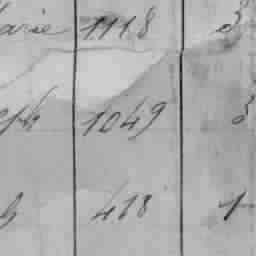 arie 1118 3
eph 1049 3
h 418 1